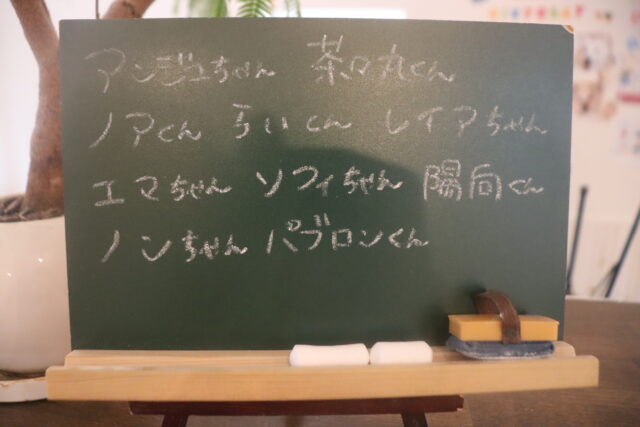 アンジュちゃん 茶々丸くん
ノアくん らいくん レイアちゃん
エマちゃん ソフィちゃん 陽向くん
ノンちゃん パブロンくん